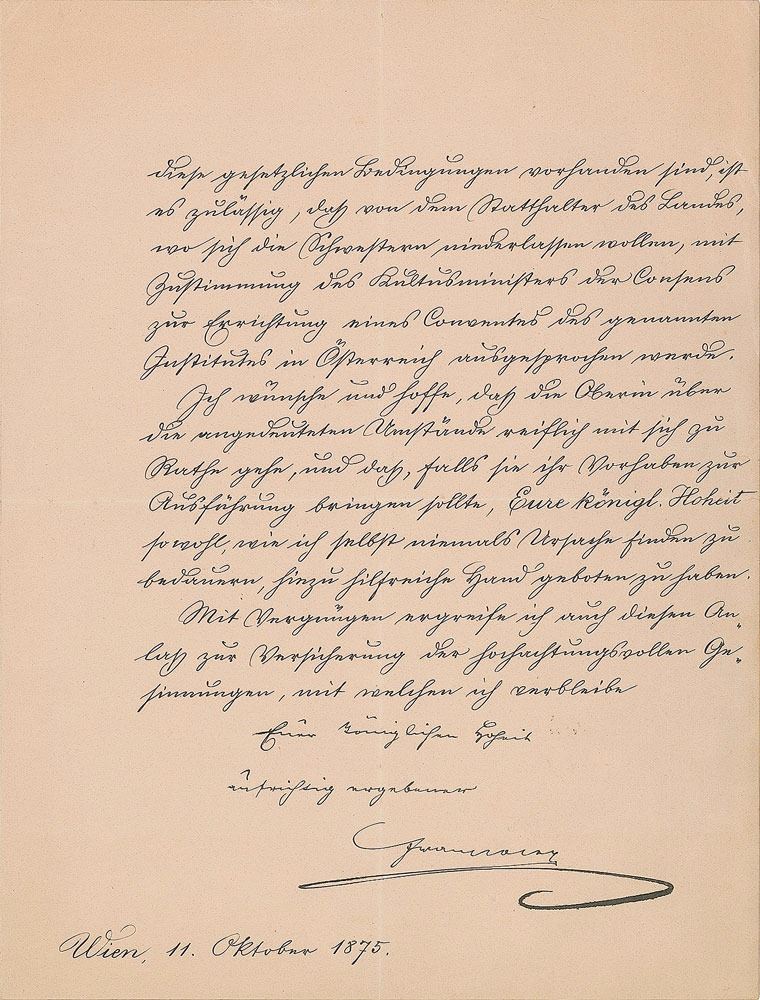 diese gesetzlichen Bedingungen vorhanden sind, ist
es zulässig, daß von dem Statthalter des Landes,
wo sich die Schwestern niederlassen wollen, mit
Zustimmung des Kultusministers der Consens
zur Errichtung eines Conventes des genannten
Institutes in Österreich ausgesprochen werde.
Ich wünsche und hoffe, daß die Oberin über
die angedeuteten Umstände reiflich mit sich zu
Rathe gehe, und daß, falls sie ihr Vorhaben zur
Ausführung bringen sollte, Eure königl. Hoheit
sowohl, wie ich selbst niemals Ursache finden zu
bedauern, hiezu hilfreiche Hand geboten zu haben.
Mit Vergnügen ergreife ich auch diesen An„
laß zur Versicherung der hochachtungsvollen Ge„
sinnungen, mit welchen ich verbleibe
Euer königlichen Hoheit
aufrichtig ergebener
Wien, 11. Oktober 1875.